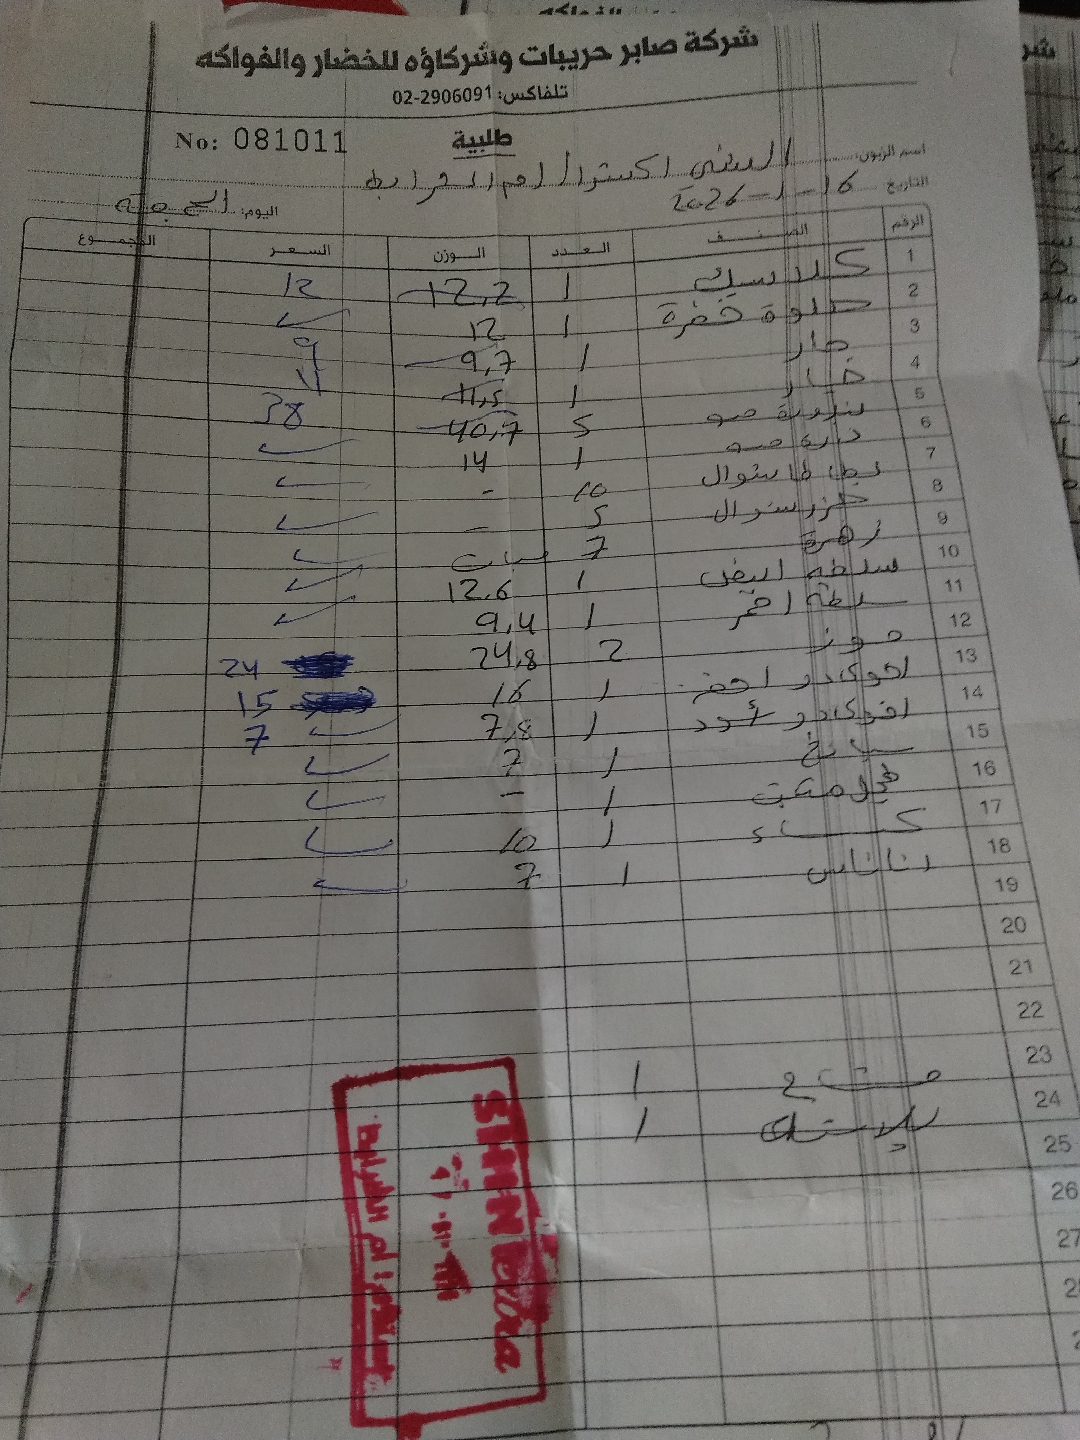 شركة صابر حريبات وشركاؤه للخضار والفواكه
تلفاكس: 02-2906091
No: 081011
طلبية
اسم الزبون: السني اكسترا ام الشرايط
التاريخ 16-1-2026
اليوم: الجمعة
الرقم الصنف العدد الوزن السعر المجموع
1 كلاسيك 1 12,2 12
2 حلوة خضرة 1 12
3 حار 1 9,7 9
4 خيار 1 11,5 11
5 بندورة 5 40,7 38
6 1 14
7 بطاطا شوال 10 -
8 جزر شوال 5 -
9 زهرة 7
10 سلطة ابيض 1 12.6
11 سلطة احمر 1 9,4
12 موز 2 24,8 24
13 افوكادو اخضر 1 16 15
14 افوكادو أسود 1 7,8 7
15 سبانخ 1 7
16 فجل 1 -
17 1 10
18 اناناس 1 7
19
20
21
22
23
24 1
25 بلاستك 1
26
27